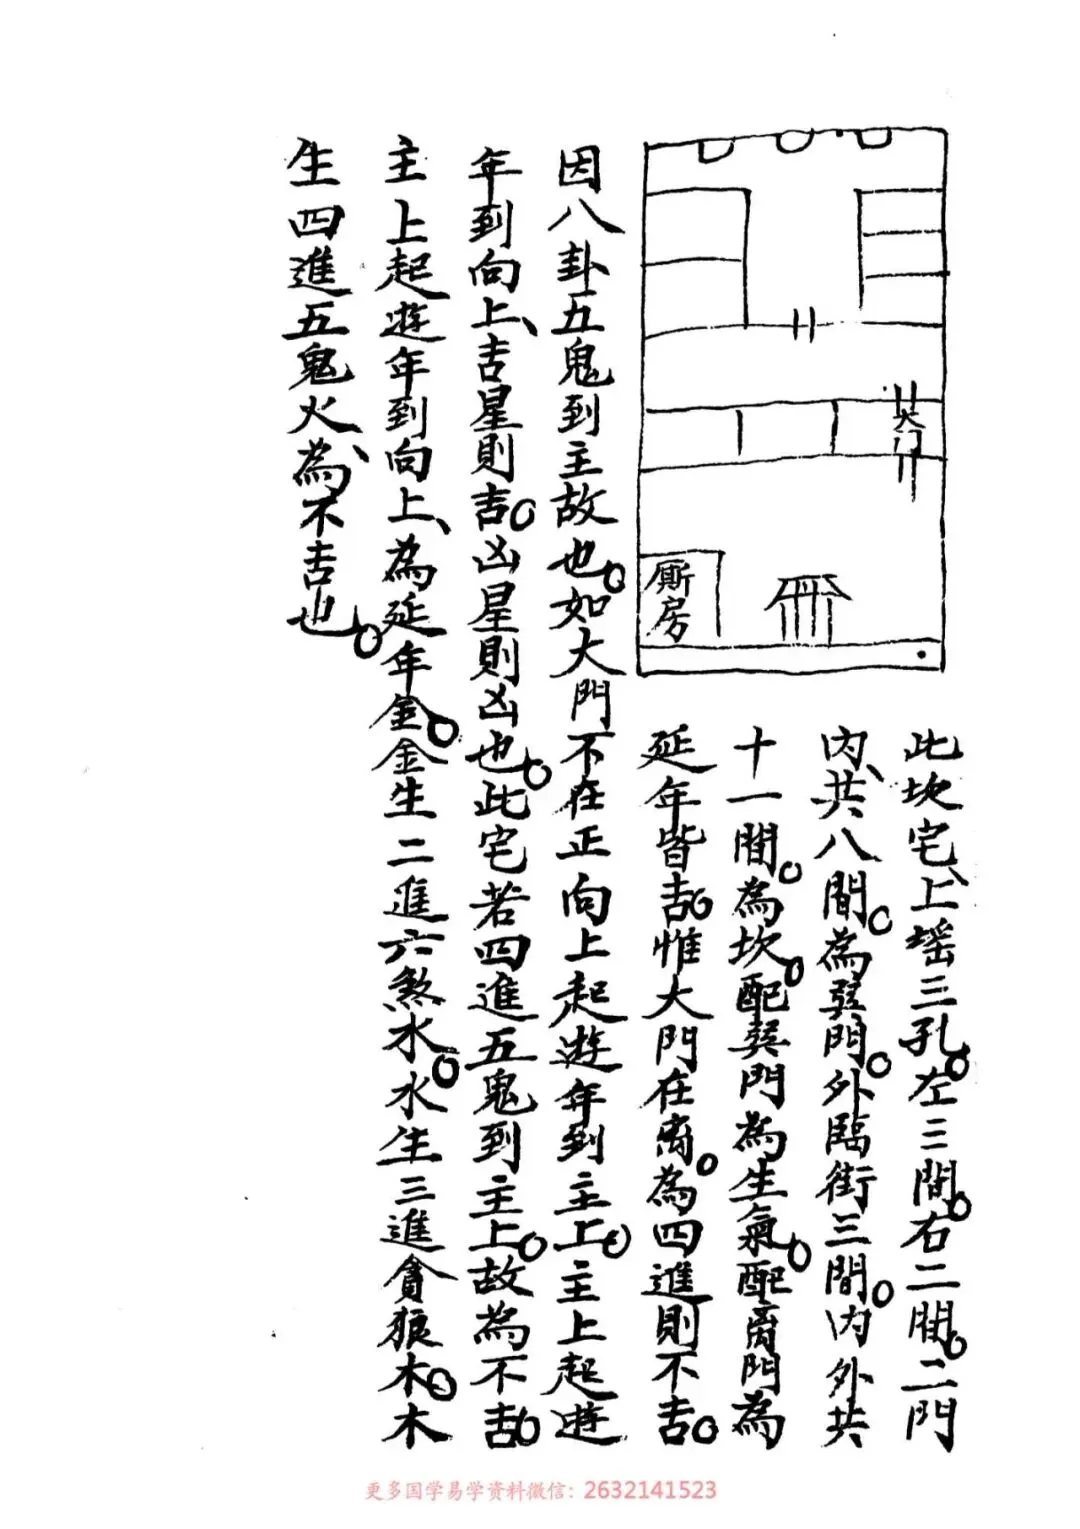 大门
厮房
此坎宅、上瑶三孔。左三間。右二間。二門
内、共八間。為巽門。外臨街三間。内外共
十一間。為坎。配巽門為生氣。配离門為
延年皆吉。惟大門在离。為四進則不吉。
因八卦五鬼到主故也。如大門不在正向上起遊年到主上。主上起遊
年到向上、吉星則吉。凶星則凶也。此宅若四進五鬼到主上。故為不吉。
主上起遊年到向上、為延年金。金生二進六煞水。水生三進貪狼木。木
生四進五鬼火、為不吉也。
更多国学易学资料微信：2632141523